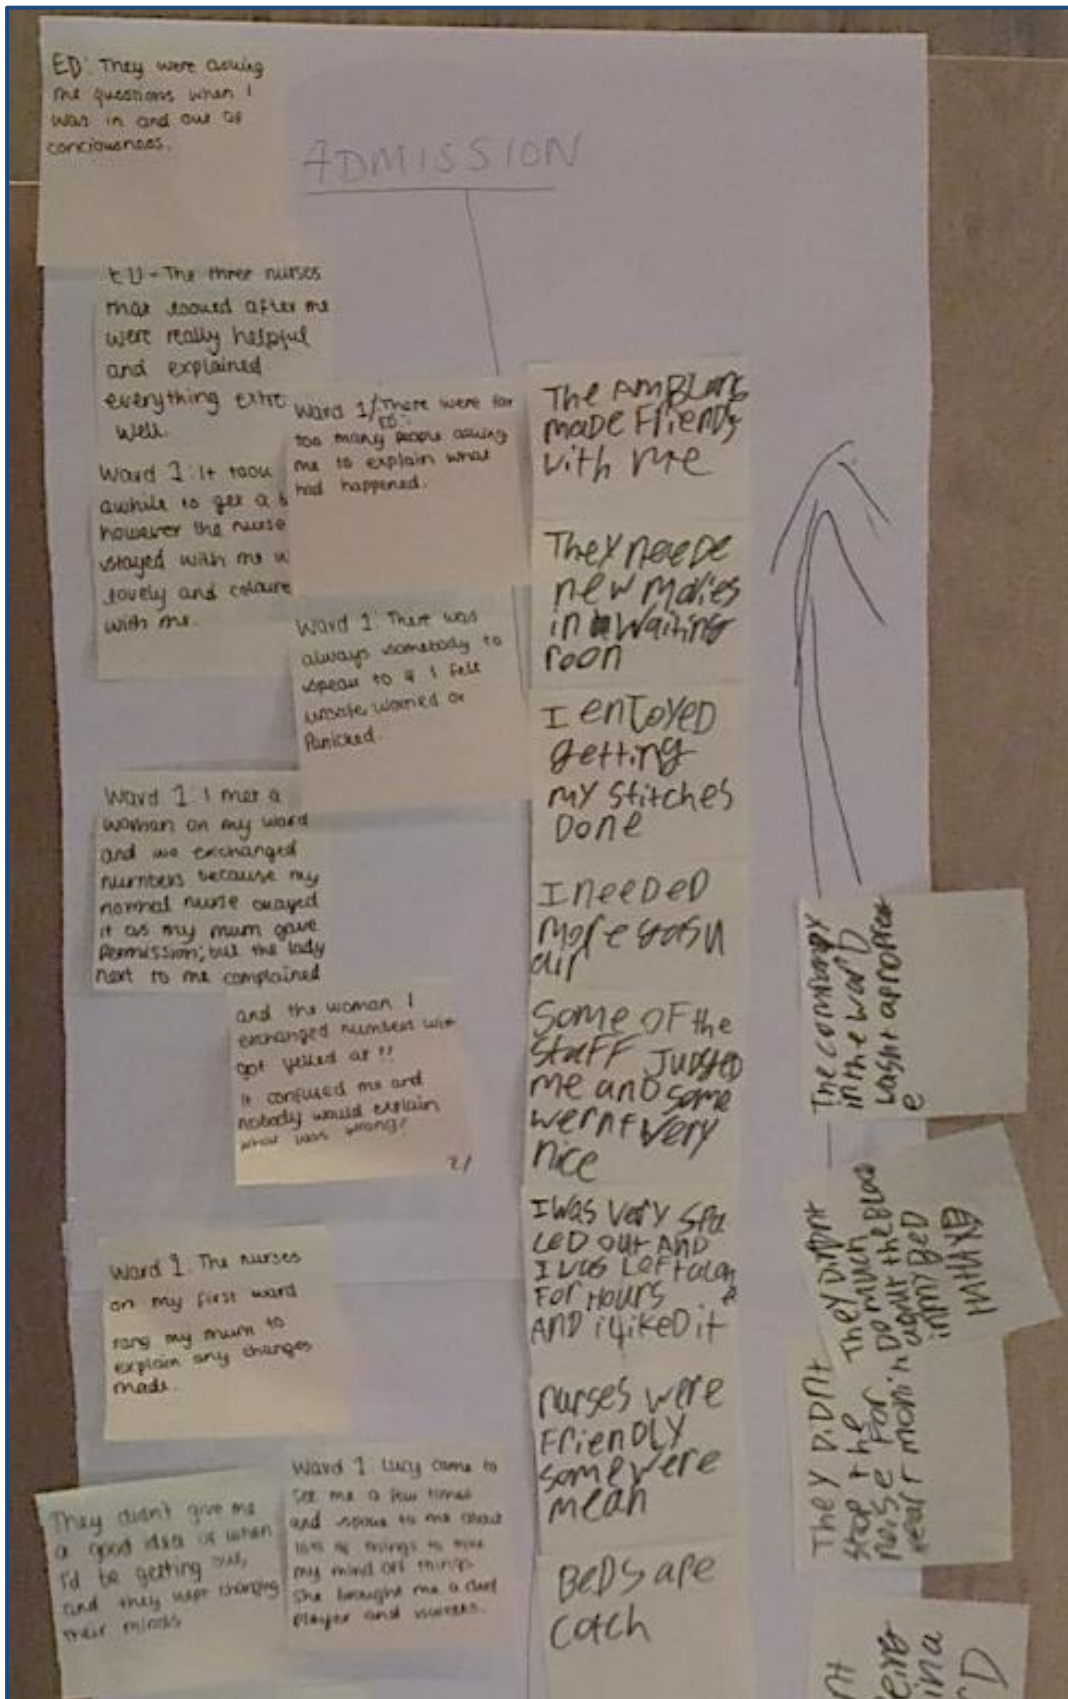 ED: They were asking
me questions when I
was in and out of
conciousness.
ADMISSION
ED - The three nurses
that looked after me
were really helpful
and explained
everything extre
well.
Ward 1: It took
awhile to get a b
however the nurse
stayed with me w
lovely and coloure
with me.
Ward 1/ED: There were far
too many people asking
me to explain what
had happened.
Ward 1: There was
always somebody to
speak to if I felt
unsafe, worried or
Panicked.
Ward 1: I met a
woman on my ward
and we exchanged
numbers because my
normal nurse okayed
it as my mum gave
permission; but the lady
next to me complained
and the woman I
exchanged numbers with
got yelled at !!
It confused me and
nobody would explain
what was wrong?
2/
Ward 1: The nurses
on my first ward
rang my mum to
explain any changes
made.
They didn't give me
a good idea of when
I'd be getting out,
and they kept changing
their minds
Ward 1: Lucy came to
see me a few times
and spoke to me about
lots of things to take
my mind off things
She brought me a dvd
player and
The AMBLANS
made Friends
with me
They neede
new movies
in Waiting
roon
I enJoyed
getting
my stitches
Done
I neeDeD
more
air
Some OF the
StaFF JuDgeD
me and some
wernt very
nice
I was very spa
ceD out AND
I was Left alone
For Hours
AND i likeD it
nurses were
FrienDLY
some were
mean
BeDs are
The company
in the warD
wasnt apropree
e
They DiDnt
Do much
about the BLOOD
in my BeD
They DiDnt
stop the
noise For
near monin
eing
ina